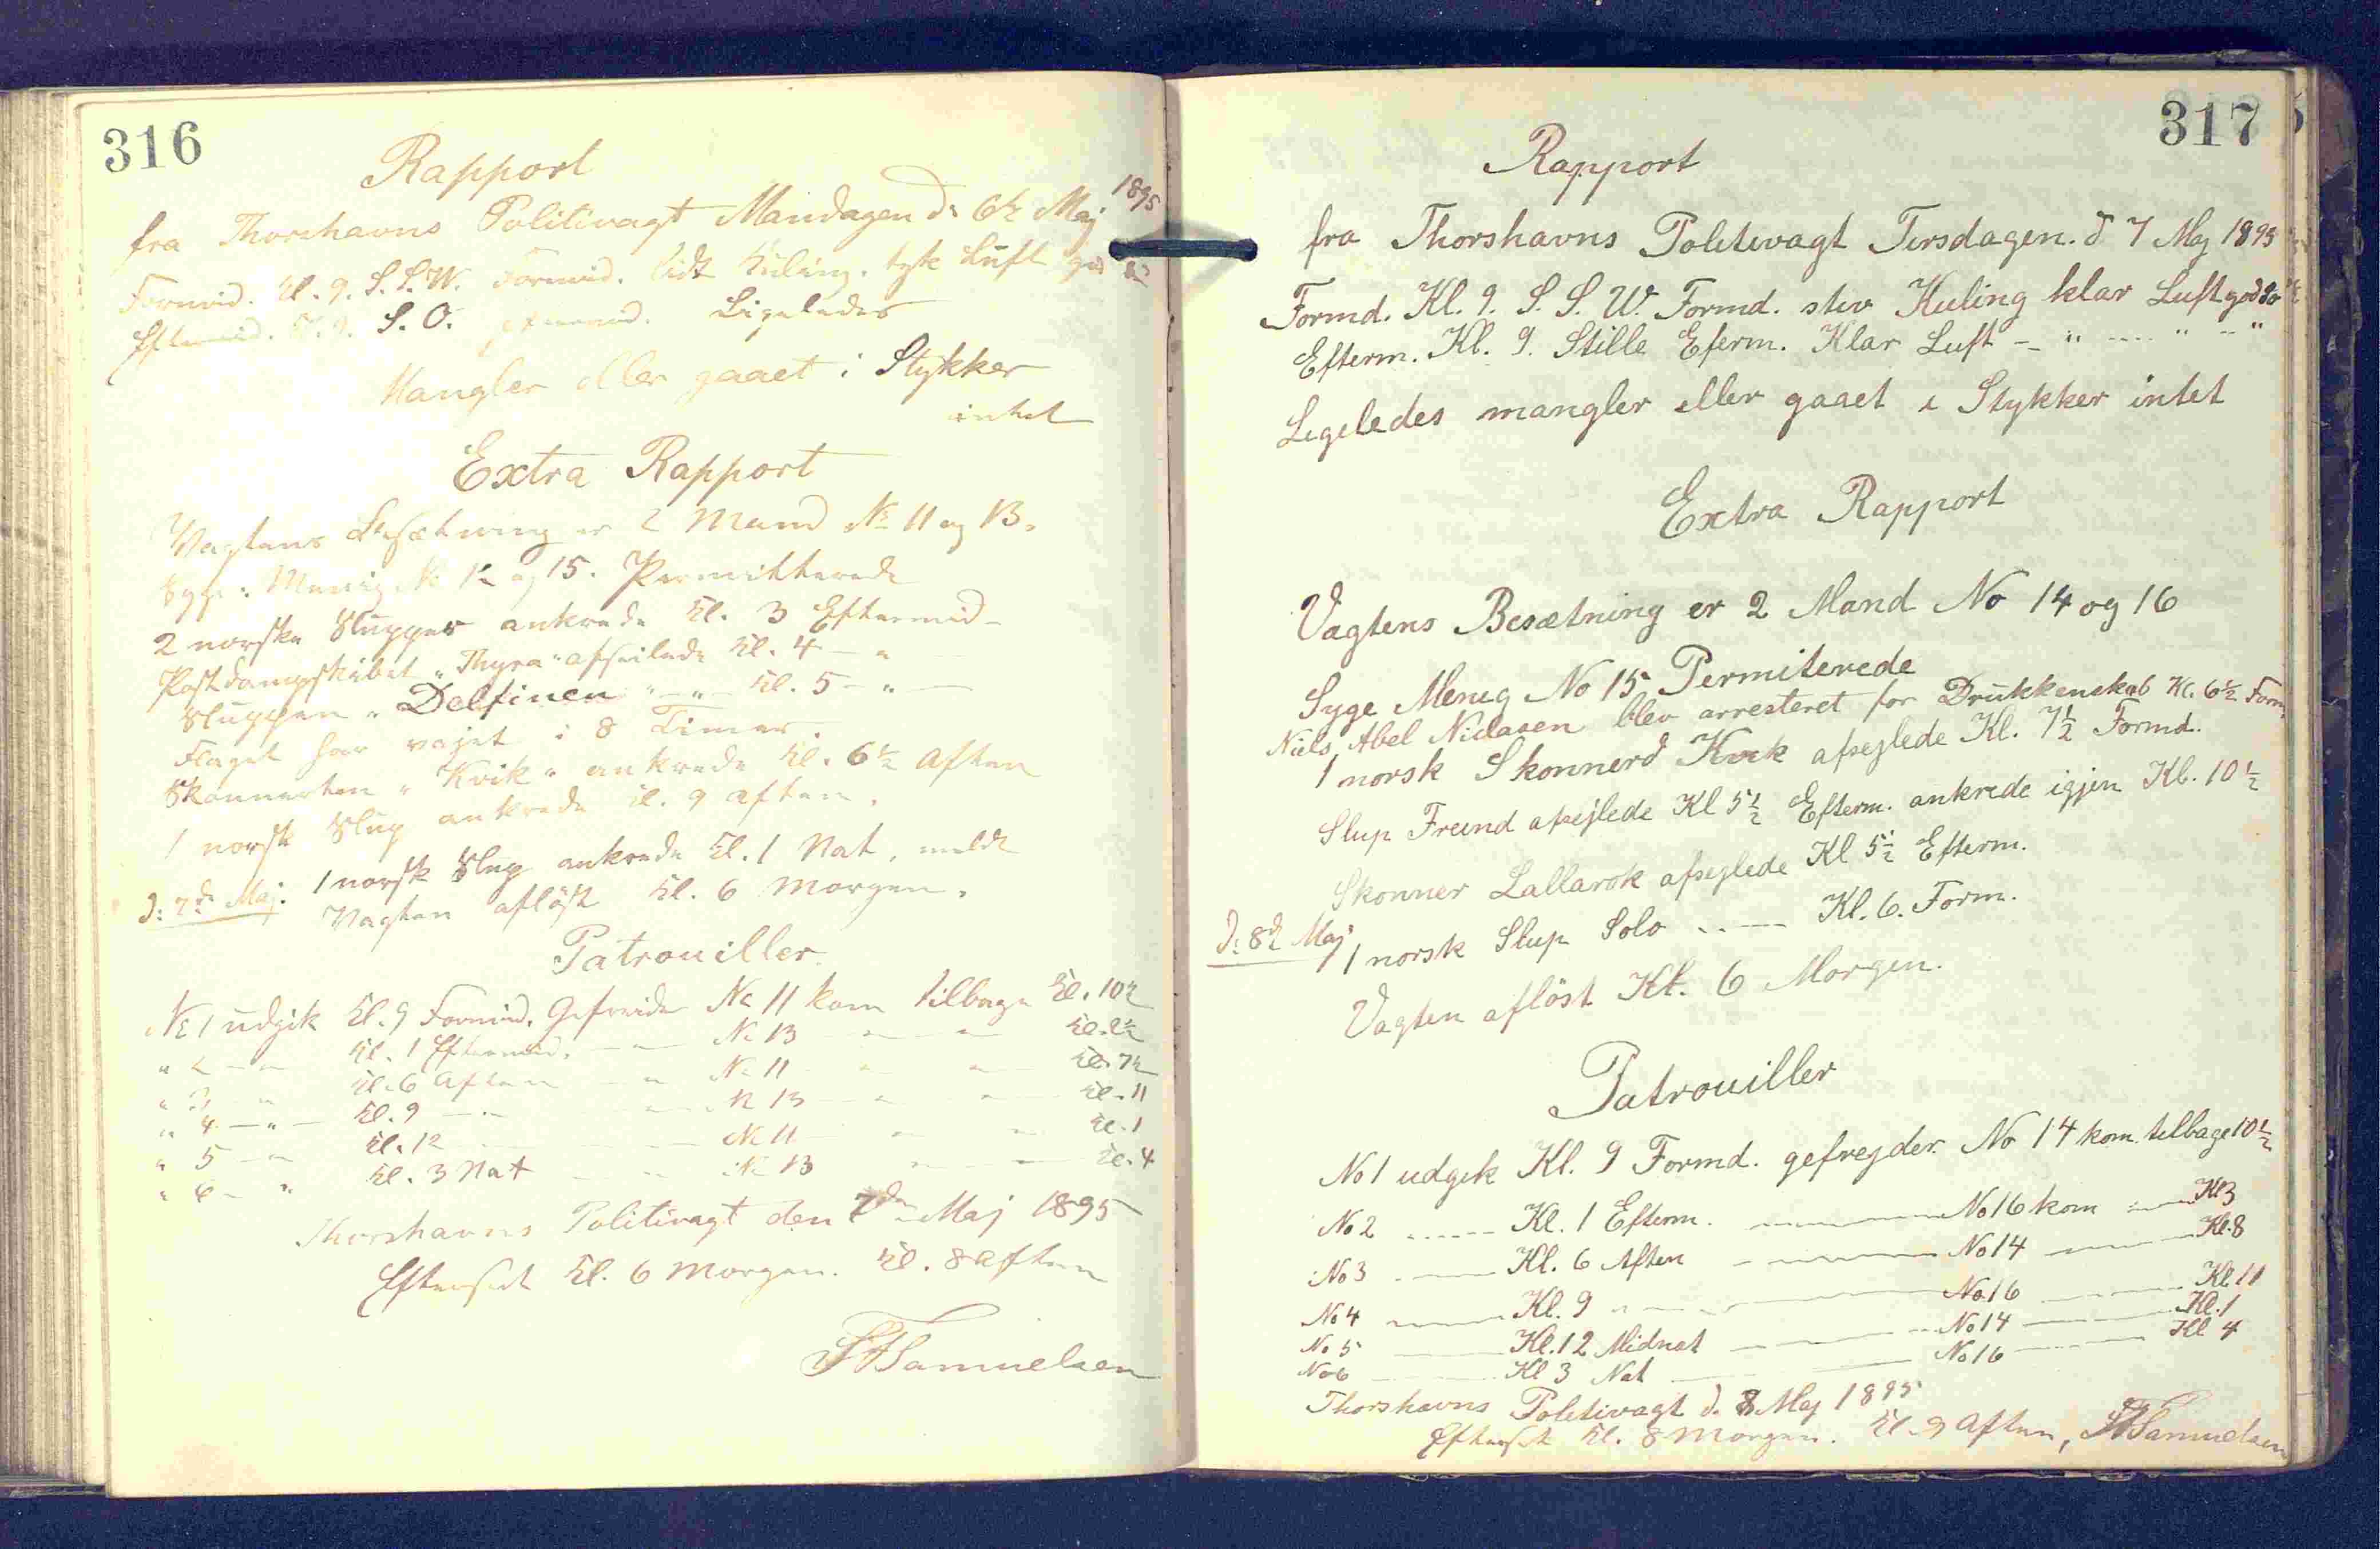 316
Rapport
fra Thorshavns Politivagt Mandagen d: 6te Maj 1895
Formid. Kl. 9. S.S.W. Formid. lidt Kuling. tyk Luft god
Eftermid. Kl. 9. S.O. Eftermid. Ligeledes
Mangler eller gaaet i Stykker
intet
Extra Rapport
Vagtens Besætning er 2 Mand No 11 og 13.
Syge: Menig No 12 og 15. Permitterede
2 norske Slupper ankrede Kl. 3 Eftermid-
Postdampskibet "Thyra" afseilede Kl. 4 — " —
Sluppen "Delfinen" — " — Kl. 5 — " —
Flaget har vajet i 8 Timer.
Skonnerten "Kvik" ankrede Kl. 6½ Aften
1 norsk Slup ankrede Kl. 9 Aften.
d: 7de Maj. 1 norsk Slup ankrede Kl. 1 Nat,
Vagten afløst Kl. 6 Morgen.
Patrouiller.
No 1 udgik Kl. 9 Formid. Gefreider No 11 kom tilbage Kl. 10½
" 2 — " Kl. 1 Eftermid. — " — No 13 — " — " — Kl. 2½
" 3 — " Kl. 6 Aften — " — No 11 — " — " — Kl. 7½
" 4 — " — Kl. 9 — " — — " — No 13 — " — " — Kl. 11
" 5 — " Kl. 12 — — No 11 — " — " — Kl. 1
" 6 — " Kl. 3 Nat — " — No 13 — " — " — Kl. 4
Thorshavns Politivagt den 7de Maj 1895
Efterset Kl. 6 Morgen. Kl. 8 Aften
Samuelsen
317
Rapport
fra Thorshavns Politivagt Tirsdagen. d 7 Maj 1895
Formd. Kl. 9. S. S. W. Formd. stiv Kuling klar Luft god
Efterm. Kl. 9. Stille Eferm. Klar Luft — " — " — "
Ligeledes mangler eller gaaet i Stykker intet
Extra Rapport
Vagtens Besætning er 2 Mand No 14 og 16
Syge Menig No 15 Permiterede
Niels, Abel Niclasen blev arresteret for Drukkenskab Kl. 6½ Form.
1 norsk Skonnerd Kvik afsejlede Kl. 7½ Formd.
Slup Freund afsejlede Kl 5½ Efterm. ankrede igjen Kl. 10½
Skonner Lallarok afsejlede Kl 5½ Efterm.
d: 8de Maj 1 norsk Slup Solo — " — Kl. 6. Form.
Vagten afløst Kl. 6 Morgen.
Patrouiller
No 1 udgik Kl. 9 Formd. gefrejder No 14 kom tilbage 10½
No 2 — Kl. 1 Efterm. — No 16 kom — Kl 3
No 3 — Kl. 6 Aften — No 14 — Kl. 8
No 4 — Kl. 9 — " — No 16 — Kl. 11
No 5 — Kl. 12 Midnat — No 14 — Kl. 1
No 6 — Kl 3 Nat — No 16 — Kl 4
Thorshavns Politivagt d. 8 Maj 1895
Efterset Kl. 8 Morgen. Kl. 9 Aften, Samuelsen